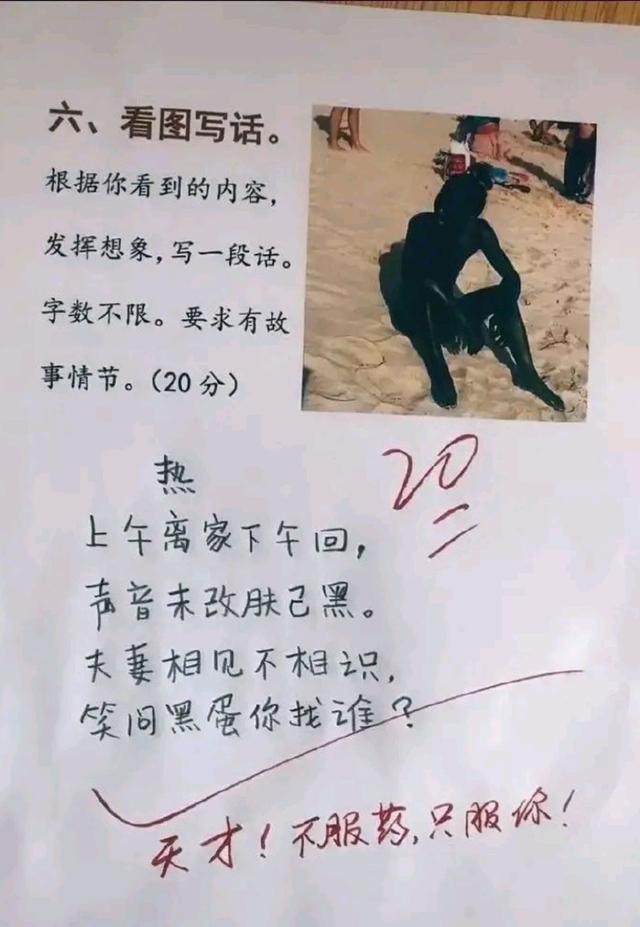 六、看图写话。
根据你看到的内容，
发挥想象，写一段话。
字数不限。要求有故
事情节。（20分）
热
20
上午离家下午回，
声音未改肤已黑。
夫妻相见不相识，
笑问黑蛋你找谁？
天才！不服药，只服你！